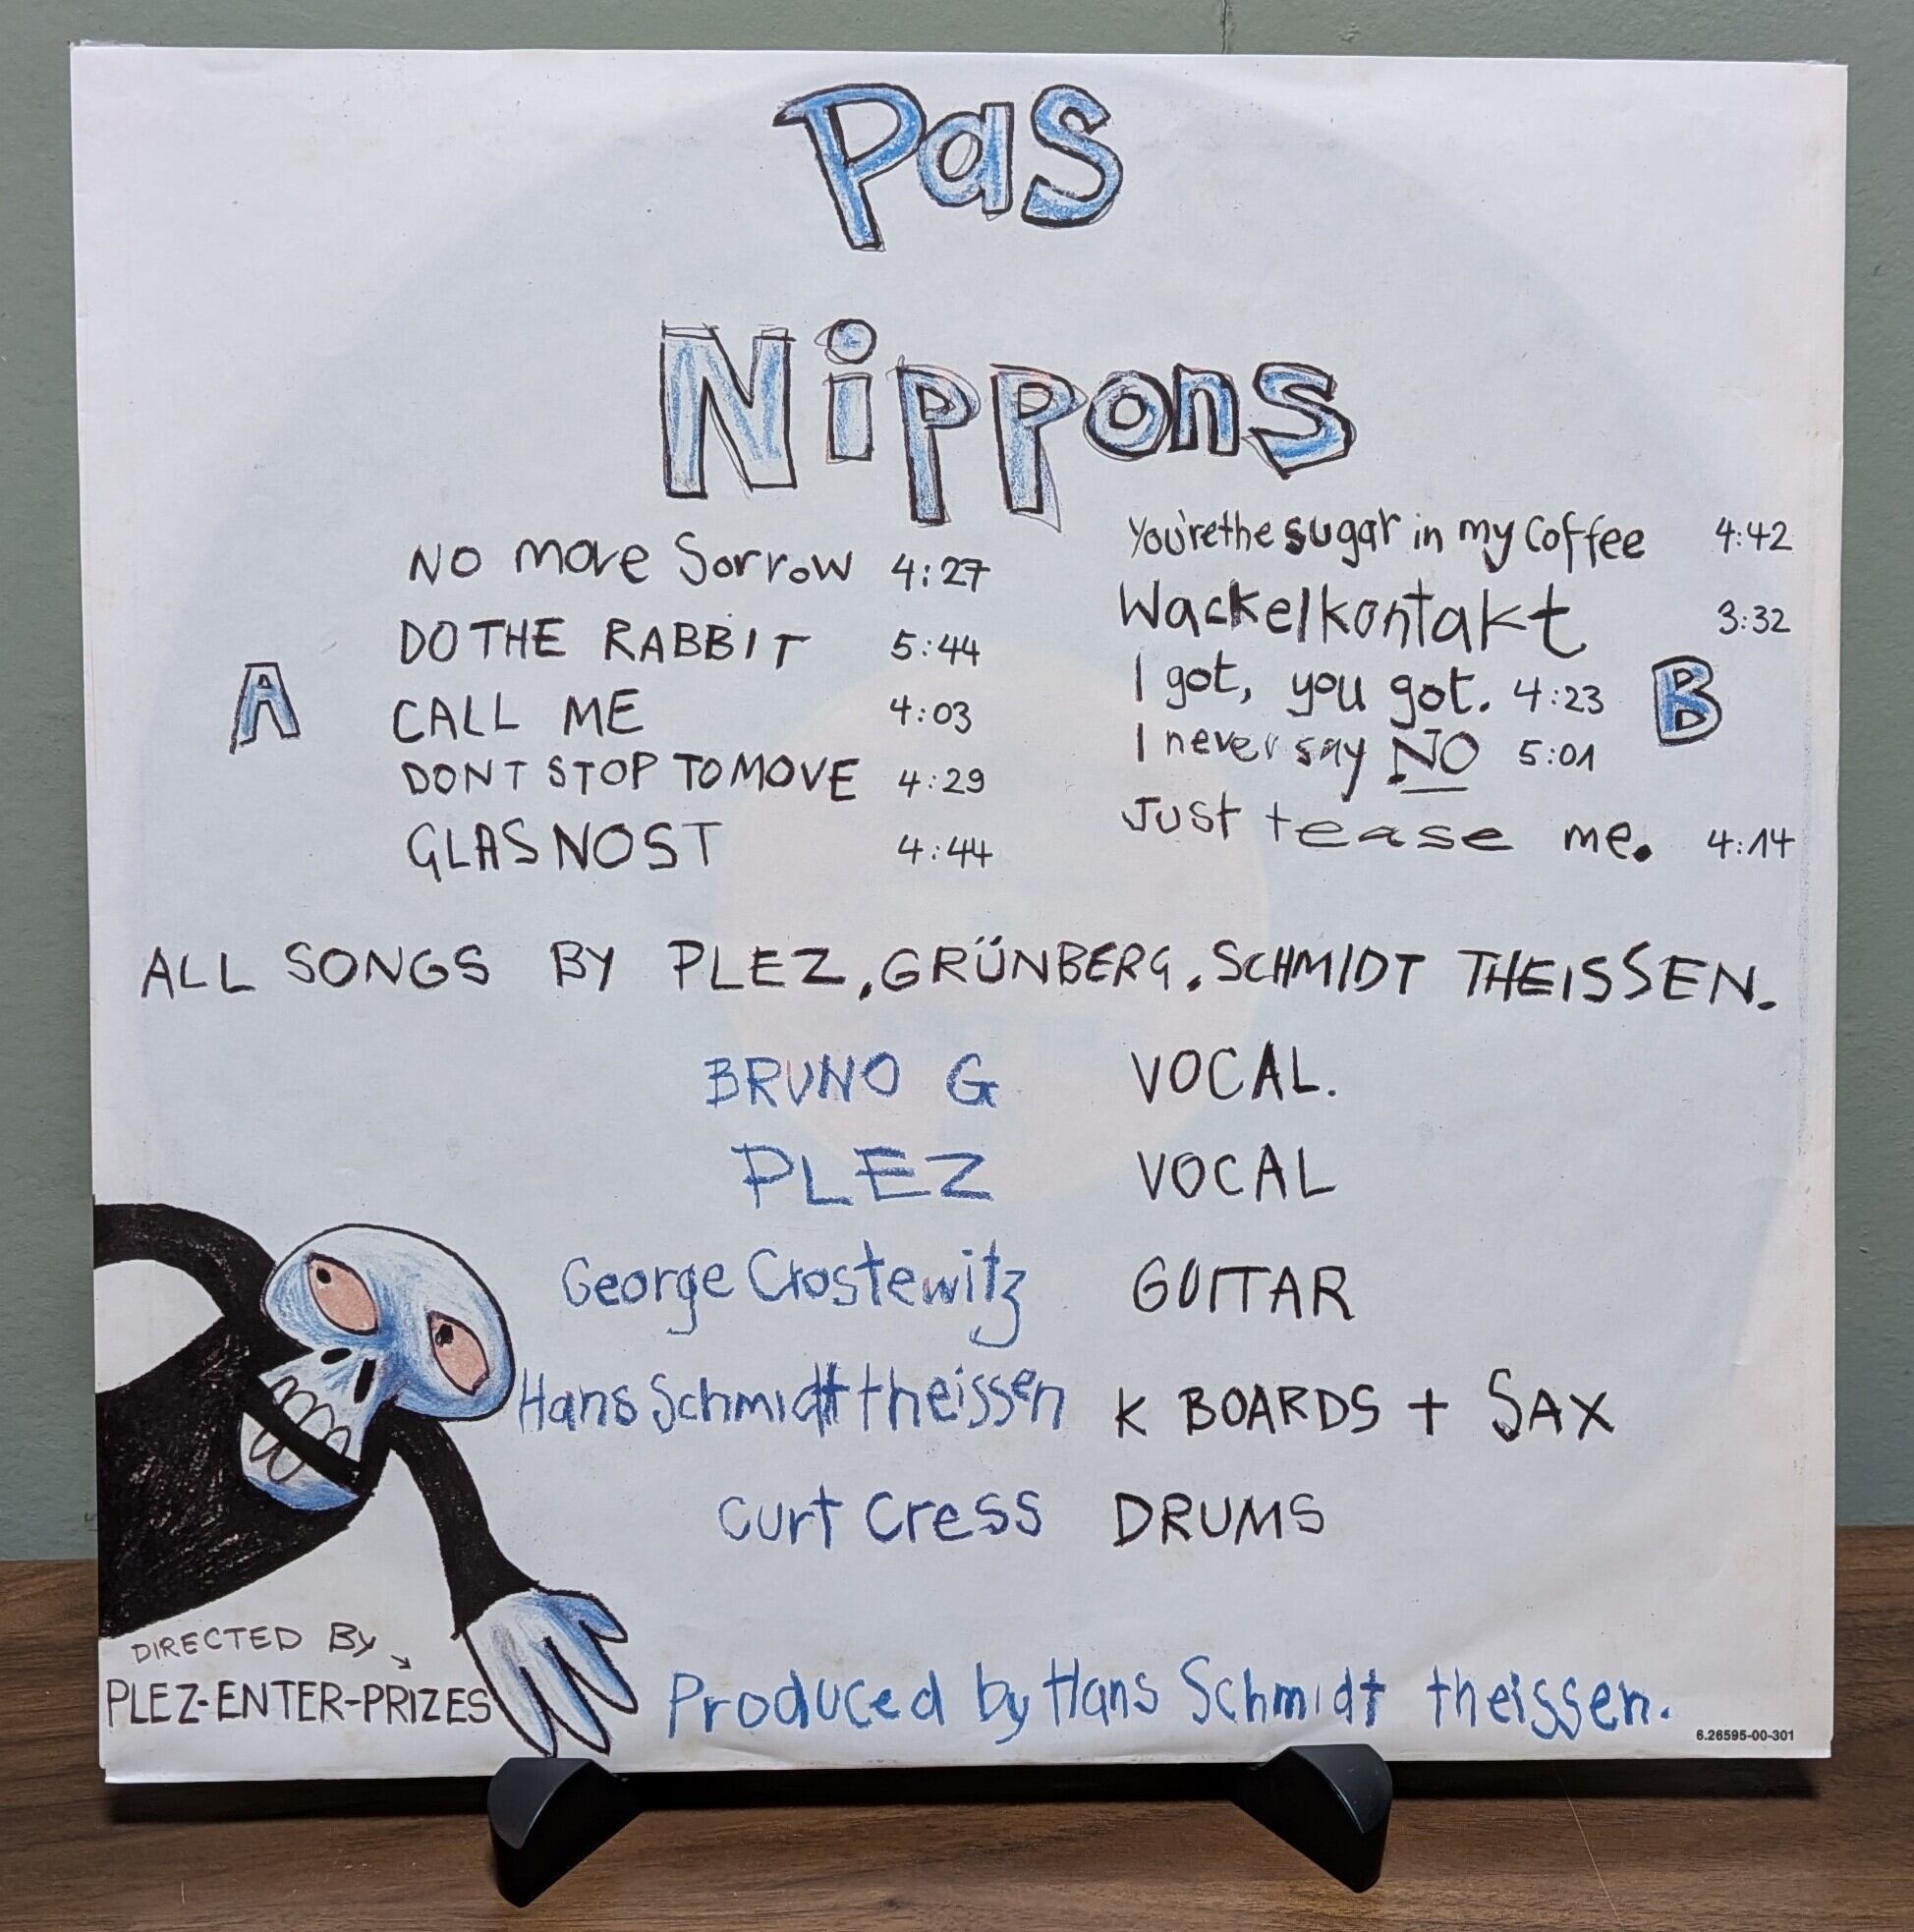 Pas
Nippons
A
No more Sorrow 4:27
DO THE RABBIT 5:44
CALL ME 4:03
DONT STOP TO MOVE 4:29
GLASNOST 4:44
You're the sugar in my Coffee 4:42
Wackelkontakt 3:32
I got, you got. 4:23
I never say NO 5:01
Just tease me. 4:14
B
ALL SONGS BY PLEZ, GRÜNBERG, SCHMIDT THEISSEN.
BRUNO G VOCAL.
PLEZ VOCAL
George Crostewitz GUITAR
Hans Schmidt theissen K BOARDS + SAX
Curt Cress DRUMS
DIRECTED By
PLEZ-ENTER-PRIZES
Produced by Hans Schmidt theissen.
6.26595-00-301